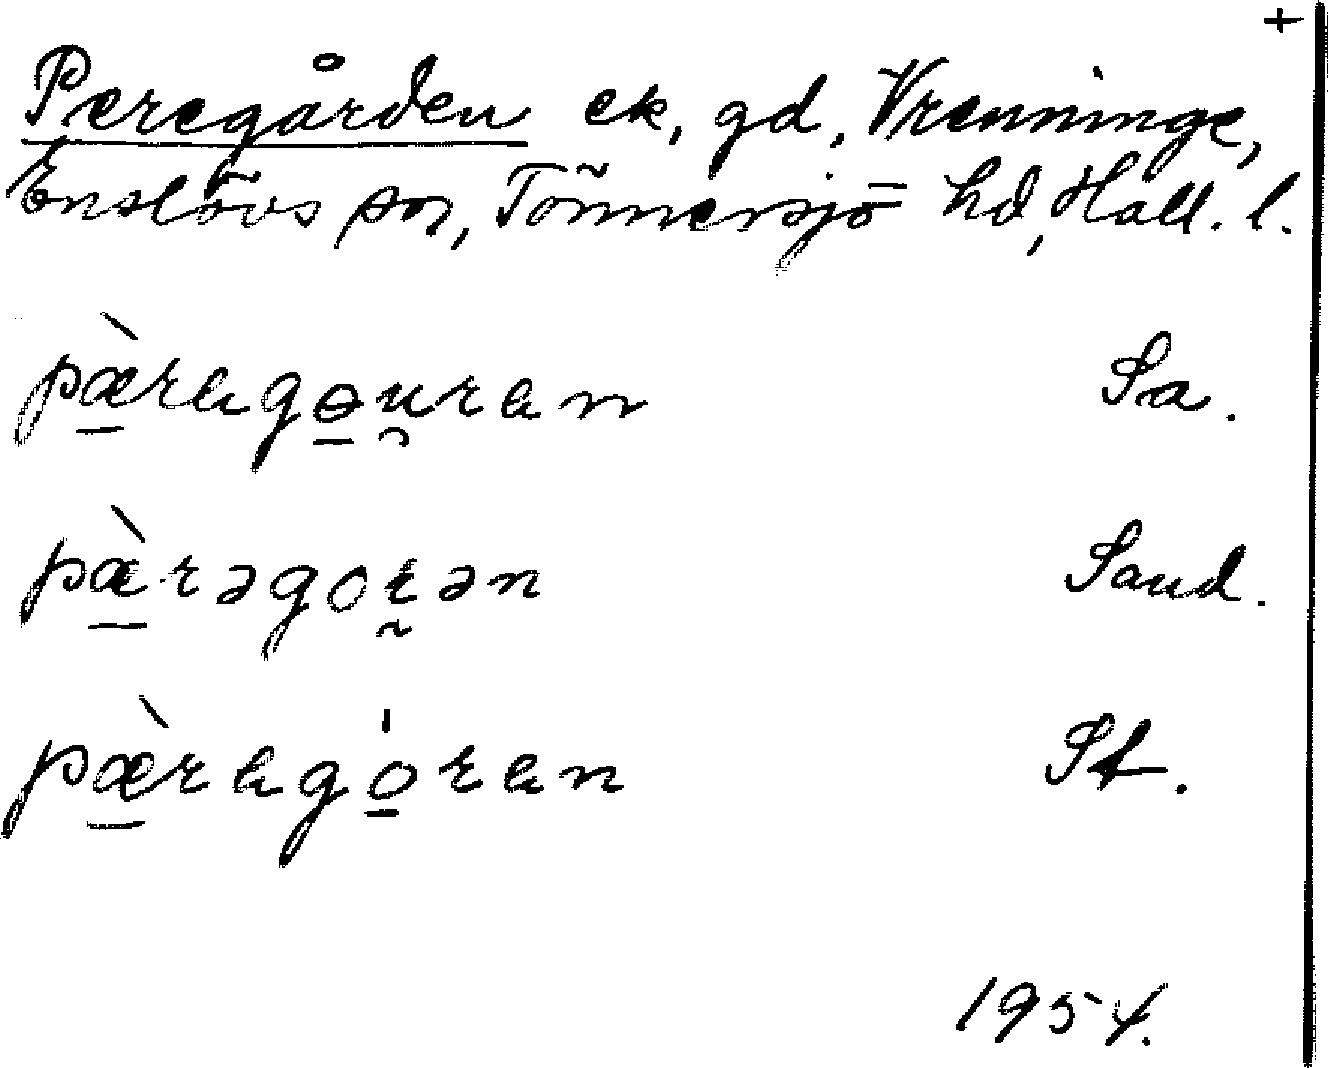 +
Peregården ek, gd, Vrenninge,
Enslövs sn, Tönnersjö hd, Hall. l.
pæ̀rəgo̱u̯rən Sa.
pæ̀rəgorən Sand.
pæ̀rəgo̱rən St.
1954.